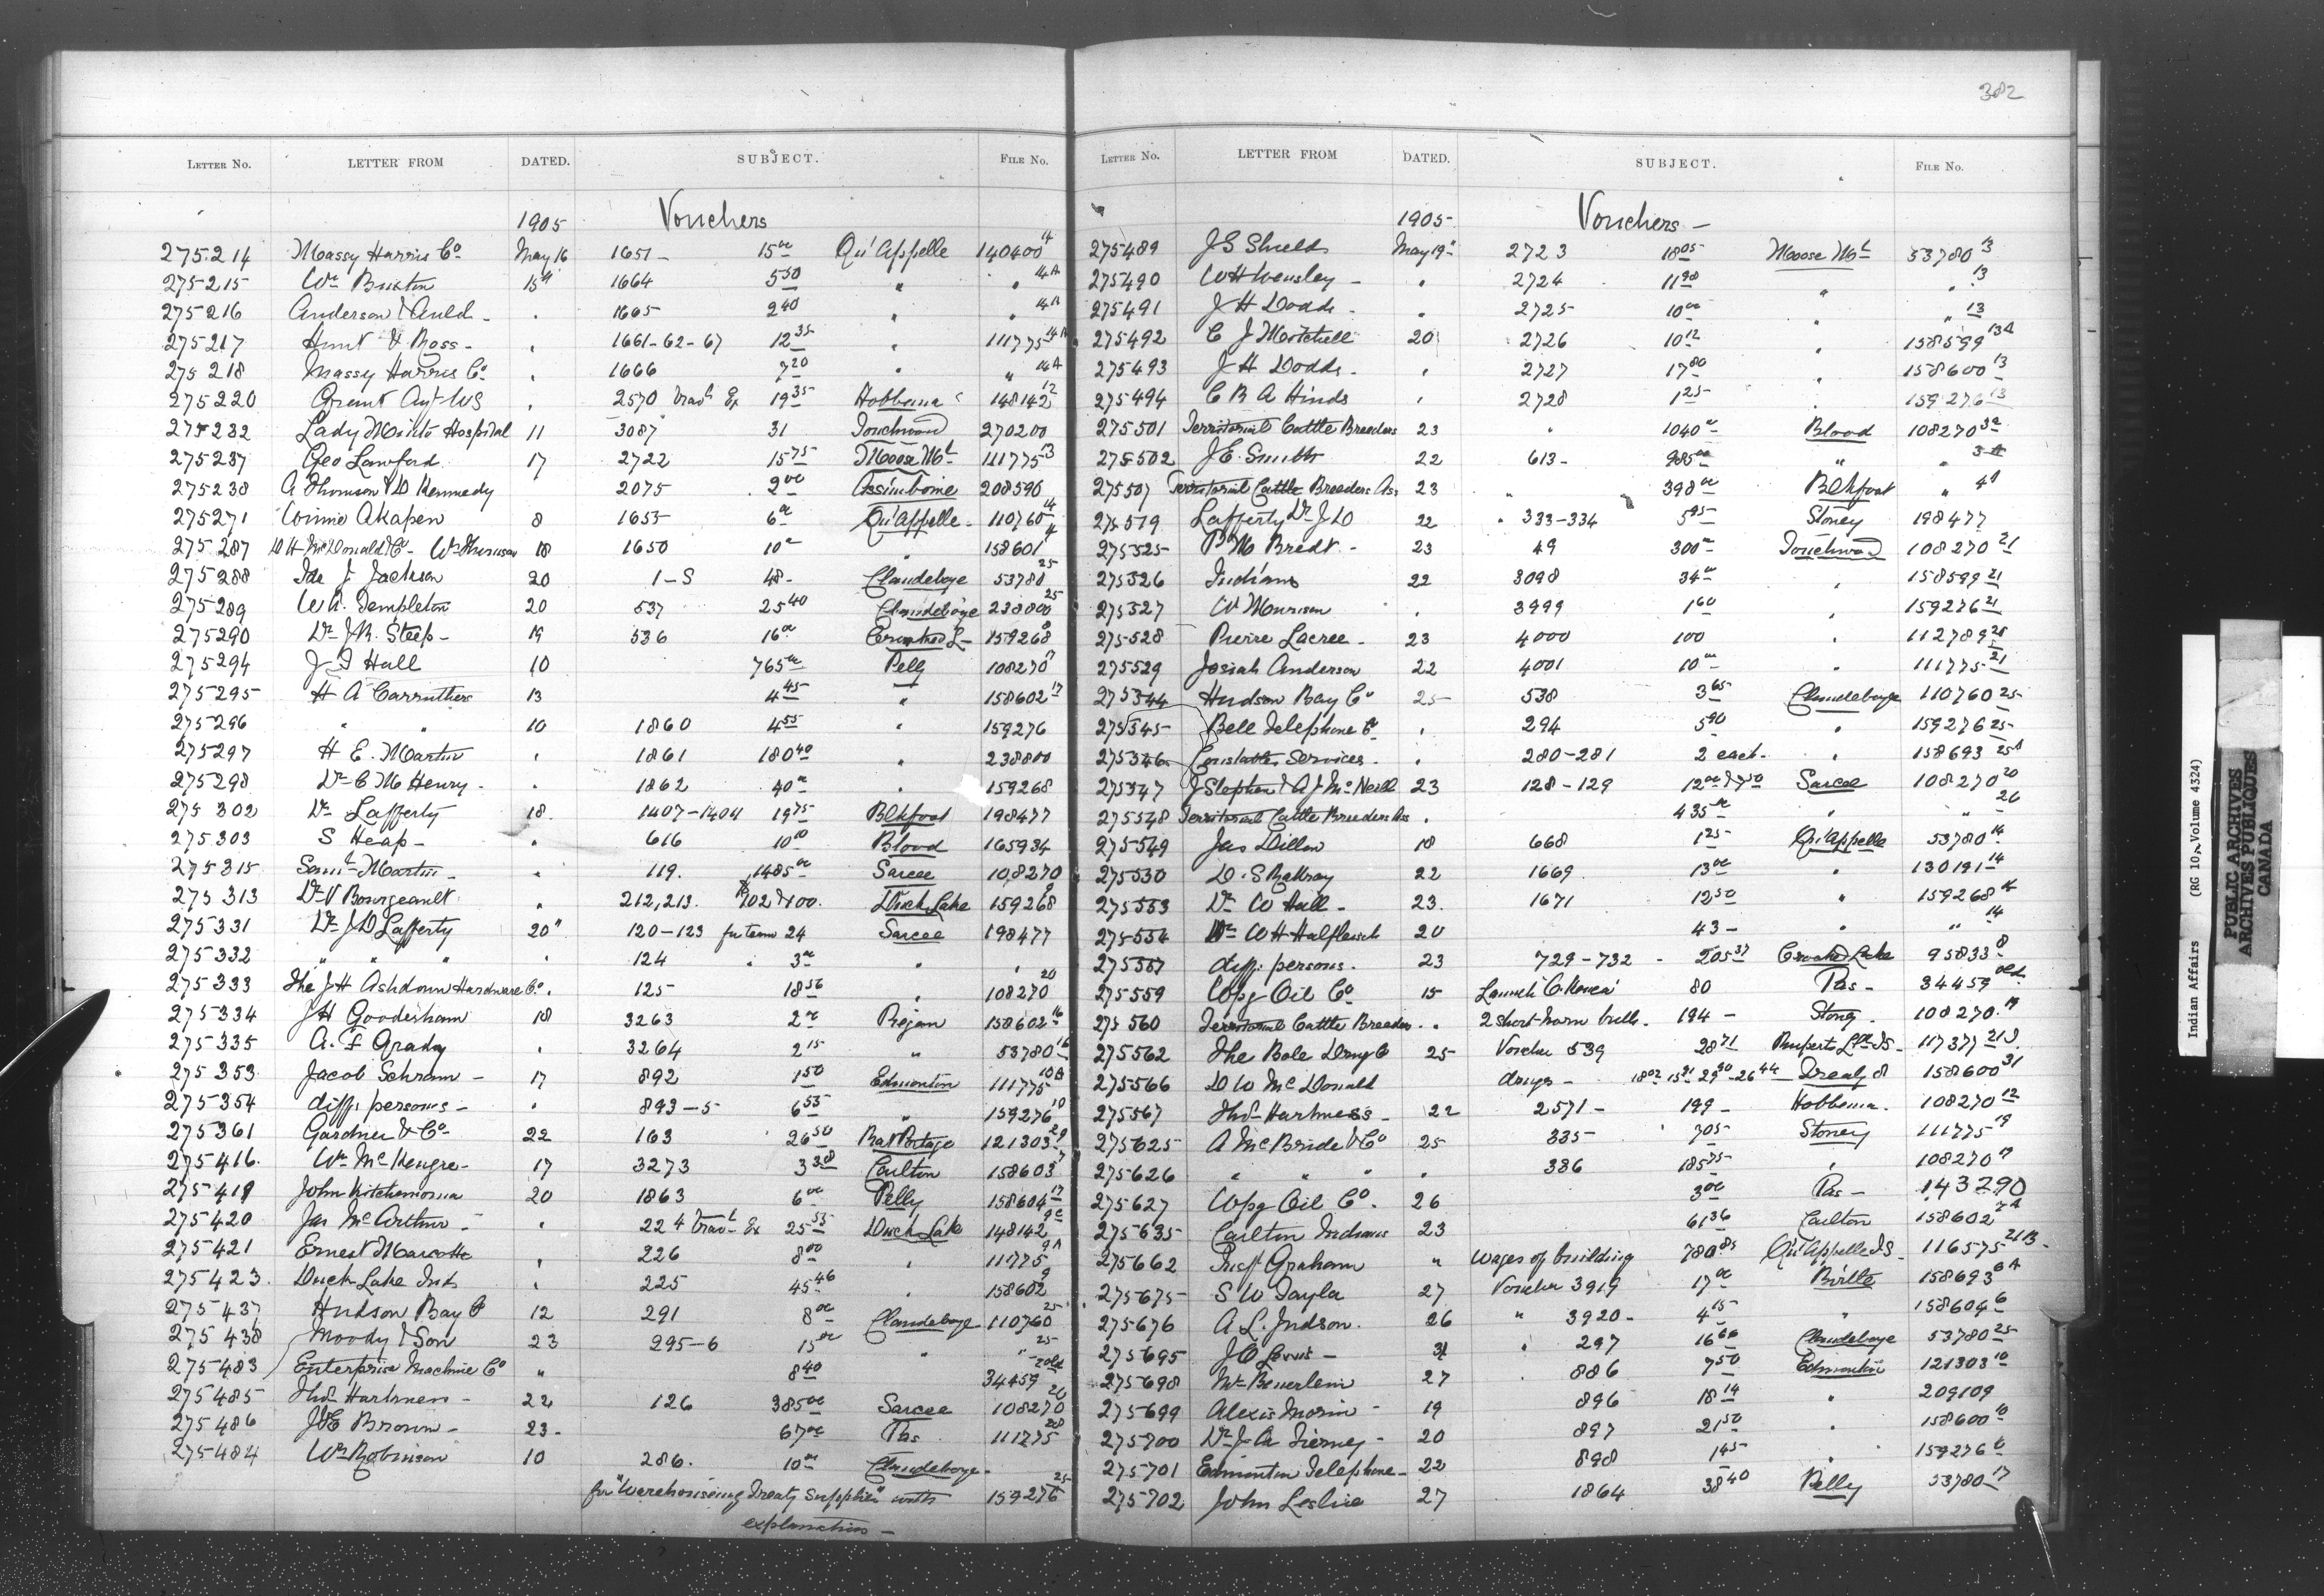 382
LETTER NO. LETTER FROM DATED. SUBJECT. FILE NO.
1905 Vouchers
275214 Massy Harris Co. May 16 1651 - 15 00 Qu'Appelle 140400 14
275215 Wm Bruxton 15th 1664 5 50 " " 14A
275216 Anderson & Auld - " 1665 2 40 " " 14A
275217 Hunt & Ross - " 1661-62-67 12 35 " 111775 14A
275218 Massy Harris Co. " 1666 7 20 " " 14A
275220 Grant Agt WS " 2570 Trav Ex 19 35 Hobbema 148142 12
275232 Lady Minto Hospital 11 3087 31 Touchwood 270200
275237 Geo Lawford 17 2722 15 75 Moose Mt 111775 13
275238 A Thomson & D Kennedy 2075 2 00 Assiniboine 208590
275271 Akapen 8 1655 6 00 Qu'Appelle - 110760 14
275287 D H McDonald & Co - Wm Thomson 18 1650 10 00 " 158601 14
275288 J Jackson 20 1-S 48 - Clandeboye 53780 25
275289 W. A. Templeton 20 537 25 40 Clandeboye 238800 25
275290 Dr J R. Steep - 19 536 16 00 Crooked L - 159268 8
275294 J J Hall 10 765 00 Pelly 108270 17
275295 H A Carruthers 13 4 45 " 158602 17
275296 " " 10 1860 4 55 " 159276
275297 H E. Martin " 1861 180 40 " 238800
275298 Dr C M Henry - " 1862 40 00 " 159268
275302 Dr Lafferty 18 1407-1404 19 75 Blkfoot 198477
275303 S Heap - " 616 10 00 Blood 165934
275315 Saml Martin - " 119. 1485 00 Sarcee 108270
275313 Dr V Bourgeault " 212, 213. 702 & 100. Duck Lake 159268 9
275331 Dr J D Lafferty 20" 120-123 for team 24 Sarcee 198477
275332 " " " " 124 " 3 00 " "
275333 The J H Ashdown Hardware Co. " 125 18 56 " 108270 20
275334 J H Gooderham 18 3263 2 00 Piegan 158602 16
275335 A. F Grady " 3264 2 15 " 53780 16
275353 Jacob Schram - 17 892 1 50 Edmonton 111775 10A
275354 diff. persons - " 893-5 6 55 " 159276 10
275361 Gardner & Co - 22 163 26 50 Rat Portage 121303 29
275416. Wm McKengre - 17 3273 3 38 Carlton 158603 7
275419 John Kitchemonia 20 1863 6 00 Pelly 158604 17
275420 Jas McArthur - " 224 Travl Ex 25 55 Duck Lake 148142 9c
275421 Ernest Marcotte " 226 8 00 " 11775 9A
275423. Duck Lake Inds " 225 45 46 " 158602 9
275437 Hudson Bay Co 12 291 8 00 Clandeboye 110760 25
275438 Moody & Son 23 295-6 15 00 " " 25
275483 Enterprise Machine Co " 8 40 34459 20ld
275485 Thos Hartness - 22 126 385 00 Sarcee 108270 20
275486 J. E Brown - 23 - 67 00 Pas 111775 28
275484 Wm Robinson 10 286. 10 00 Clandeboye -
for "Warehousing Treaty Supplies" with 159276 25
explanation -
LETTER NO. LETTER FROM DATED. SUBJECT. FILE NO.
1905 Vouchers -
275489 J G Shields May 19" 2723 18 05 Moose Mt 53780 13
275490 W H Wensley - " 2724 11 98 " " 13
275491 J H Dodds - " 2725 10 00 " " 13
275492 C J Mitchell 20 2726 10 12 " 158599 13A
275493 J H Dodds - " 2727 17 80 " 158600 13
275494 C B A Hinds " 2728 1 25 " 159276 13
275501 Territorial Cattle Breeders 23 " 1040 00 Blood 108270 3a
275502 J. E. Smith 22 613 - 985 00 " " 3a
275507 Territorial Cattle Breeders Ass 23 " 398 00 Blkfoot " 4A
275519 Lafferty Dr J D 22 " 333-334 5 95 Stoney 198477
275525 P M Bredt - 23 49 300 00 Touchwood 108270 21
275526 Indians 22 3098 34 00 " 158599 21
275527 W Morrison " 3999 1 60 " 159276 21
275528 Pierre Lacree - 23 4000 100 " 112789 21
275529 Josiah Anderson 22 4001 10 00 " 111775 21
275544 Hudson Bay Co 25 538 3 65 Clandeboye 110760 25
275545 Bell Telephone Co " 294 5 90 " 159276 25
275546 Constables Services - " 280-281 2 each - " 158693 25A
275547 J Stephen & A J McNeill 23 128-129 12 00 & 7 50 Sarcee 108270 20
275548 Territorial Cattle Breeders Ass " 435 00 " " 20
275549 Jas Dillon 18 668 1 25 Qu'Appelle 53780 14
275550 D. S Rattray 22 1669 13 00 " 130191 14
275553 Dr W Hall - 23. 1671 12 50 " 159268 14
275554 W H Halfleisch 20 43 - " " 14
275557 diff. persons. 23 729-732 - 205 37 Crooked Lake 95833 8
275559 Wpg Oil Co 15 Launch 80 Pas - 34459 Old
275560 Territorial Cattle Breeders " 2 short-horn bulls. 194 - Stoney. 108270 19
275562 The Bole Drug Co 25 - Voucher 539 28 71 Ruperts Ld I S - 117377 21S
275566 D W McDonald drugs - 18 02 15 91 29 90 - 26 44 Treaty 8 158600 31
275567 Thos Hartness - 22 2571 - 199 - Hobbema. 108270 12
275625 A McBride & Co 25 335 7 05 Stoney 111775 19
275626 " " " " 386 185 75 " 108270 19
275627 Wpg Oil Co. 26 3 00 Pas - 143290
275635 Carlton Indians 23 61 36 Carlton 158602 7A
275662 Insp Graham " Wages of building 780 85 Qu'Appelle I S - 116575 21B -
275675 S W Tayla 27 Voucher 3919 17 00 Birtle 158693 6A
275676 A. L. Judson. 26 " 3920 - 4 15 " 158604 6
275695 J O Lewis - 31 " 297 16 66 Clandeboye 53780 25
275698 Wm Beuerlein 27 . 886 7 50 Edmonton 121303 10
275699 Alexis Morin - 19 896 18 19 " 209109
275700 Dr J. A Tierney - 20 897 21 50 " 158600 10
275701 Edmonton Telephone - 22 898 1 45 " 159276 10
275702 John Leslie 27 1864 38 40 Pelly 53780 17
Indian Affairs (RG 10, Volume 4324)
PUBLIC ARCHIVES
ARCHIVES PUBLIQUES
CANADA